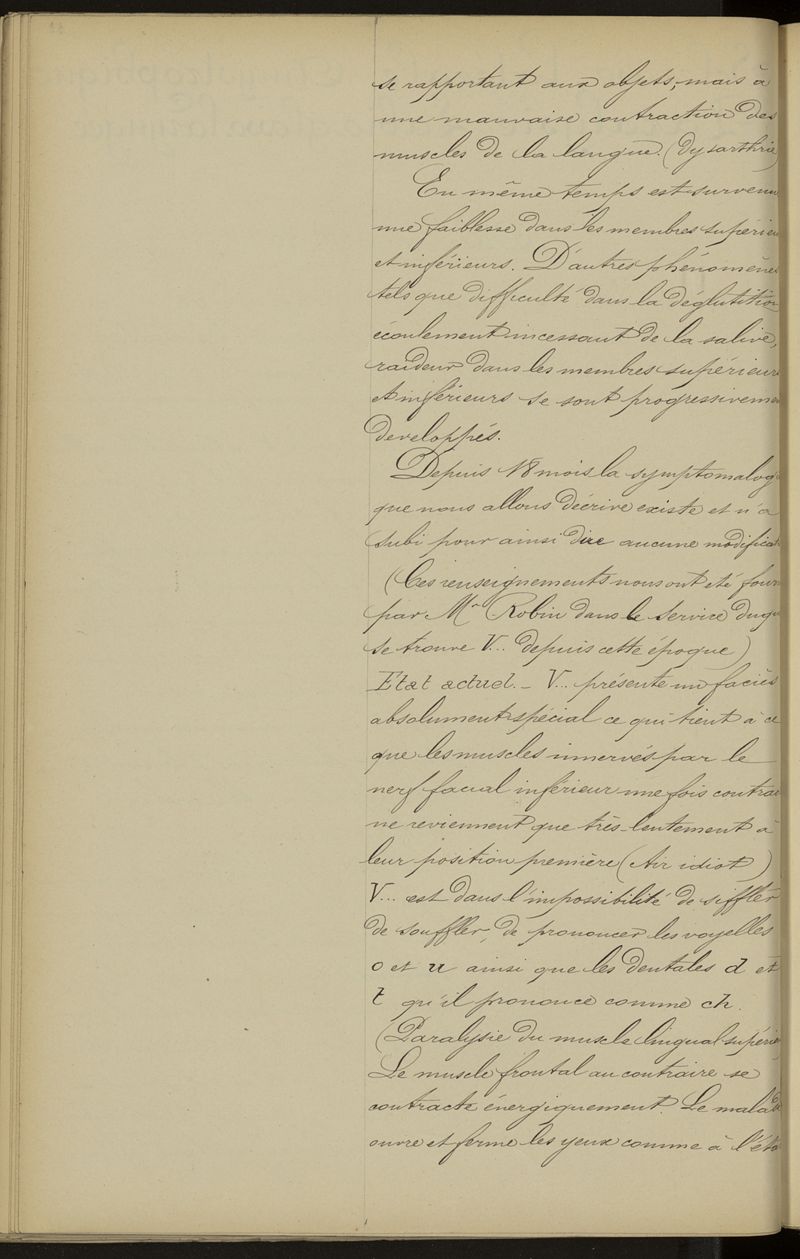 se rapportant aux objets, mais à
une mauvaise contraction des
muscles de la langue. (Dysarthrie
En même temps est survenu
une faiblesse dans les membres supérieu
et inférieurs. D'autres phénomène
tels que difficulté dans la déglutition
écoulement incessant de la salive,
raideur dans les membres supérieur
et inférieurs se sont progressiveme
developpés.
Depuis 18 mois la symptomalog
que nous allons décrire existe et n'a
subi pour ainsi dire aucune modificat
(Ces renseignements nous ont été four
par Mr Robin dans le service duqu
se trouve V... depuis cette époque)
Etat actuel. — V... présente un faciès
absolument spécial ce qui tient à ce
que les muscles innervés par le
nerf facial inférieur une fois contrac
ne reviennent que très lentement à
leur position première (Air idiot)
V... est dans l'impossibilité de siffler
de souffler, de prononcer les voyelles
o et u ainsi que les dentales d et
t qu'il prononce comme ch.
(Paralysie du muscle lingual supérie
Le muscle frontal au contraire se
contracte énergiquement. Le malade
ouvre et ferme les yeux comme à l'éta